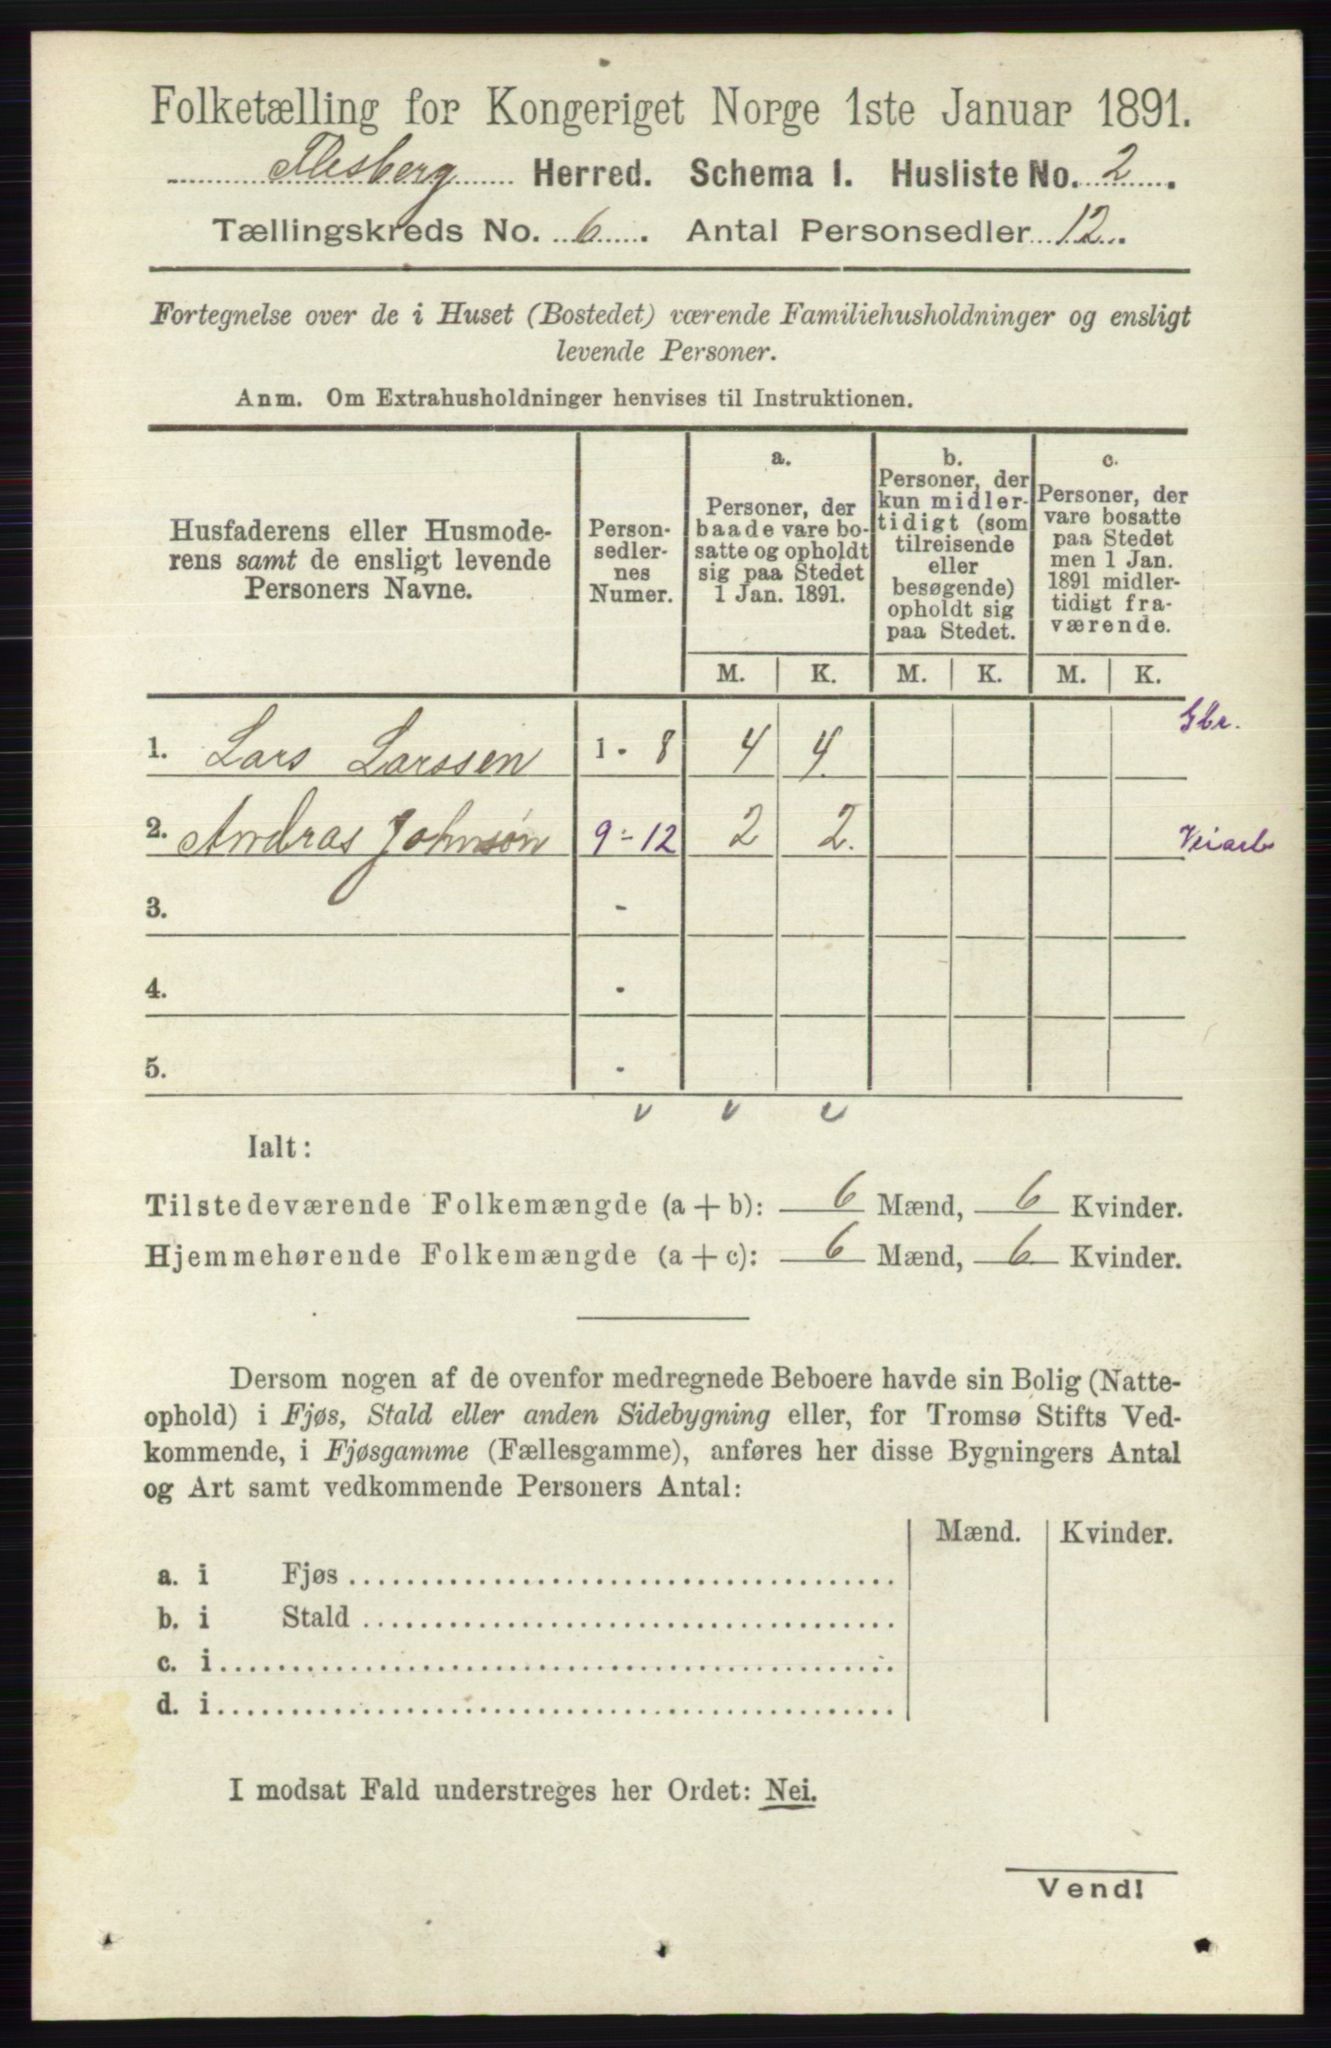 Folketælling for Kongeriget Norge 1ste Januar 1891.
Flesberg Herred. Schema 1. Husliste No. 2.
Tællingskreds No. 6. Antal Personsedler 12.
Fortegnelse over de i Huset (Bostedet) værende Familiehusholdninger og ensligt
levende Personer.
Anm. Om Extrahusholdninger henvises til Instruktionen.
Husfaderens eller Husmode-
rens samt de ensligt levende
Personers Navne.
Person-
sedler-
nes
Numer.
a.
Personer, der
baade vare bo-
satte og opholdt
sig paa Stedet
1 Jan. 1891.
b.
Personer, der
kun midler-
tidigt (som
tilreisende
eller
besøgende)
opholdt sig
paa Stedet.
c.
Personer, der
vare bosatte
paa Stedet
men 1 Jan.
1891 midler-
tidigt fra-
værende.
M. K. M. K. M. K.
1. Lars Larssen 1 - 8 4 4. Gbr.
2. Andras Johnsøn 9 - 12 2 2. Veiarb
3. -
4. -
5. -
Ialt:
Tilstedeværende Folkemængde (a + b): 6 Mænd, 6 Kvinder.
Hjemmehørende Folkemængde (a + c): 6 Mænd, 6 Kvinder.
Dersom nogen af de ovenfor medregnede Beboere havde sin Bolig (Natte-
ophold) i Fjøs, Stald eller anden Sidebygning eller, for Tromsø Stifts Ved-
kommende, i Fjøsgamme (Fællesgamme), anføres her disse Bygningers Antal
og Art samt vedkommende Personers Antal:
Mænd. Kvinder.
a. i Fjøs
b. i Stald
c. i
d. i
I modsat Fald understreges her Ordet: Nei.
Vend!